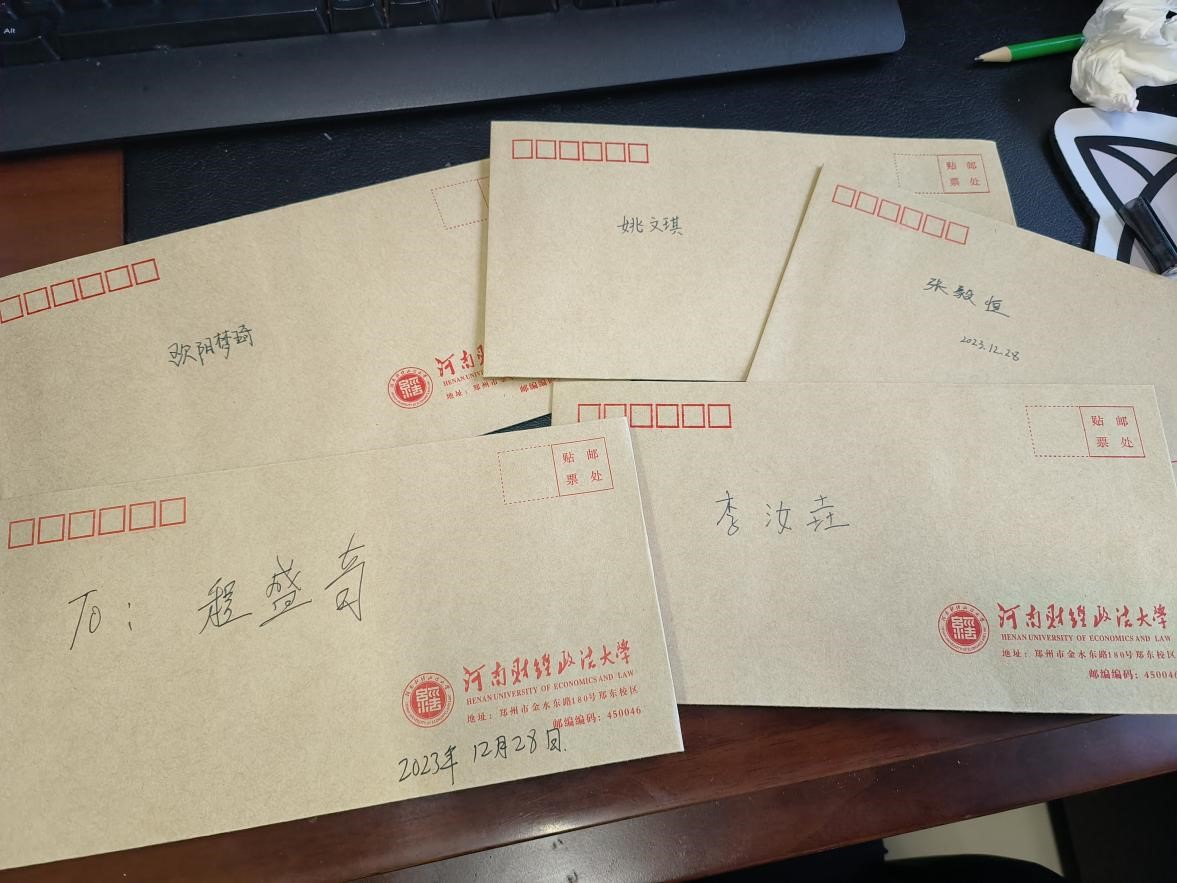 Alt
贴 邮
票 处
姚文琪
张毅恒
2023.12.28
欧阳梦琦
河南
HENAN UNIV
地址：郑州市
邮编编
贴 邮
票 处
李汝垚
河南财经政法大学
HENAN UNIVERSITY OF ECONOMICS AND LAW
地址：郑州市金水东路180号郑东校区
邮编编码：450046
贴 邮
票 处
To：程盛奇
河南财经政法大学
HENAN UNIVERSITY OF ECONOMICS AND LAW
地址：郑州市金水东路180号郑东校区
邮编编码：450046
2023年12月28日.